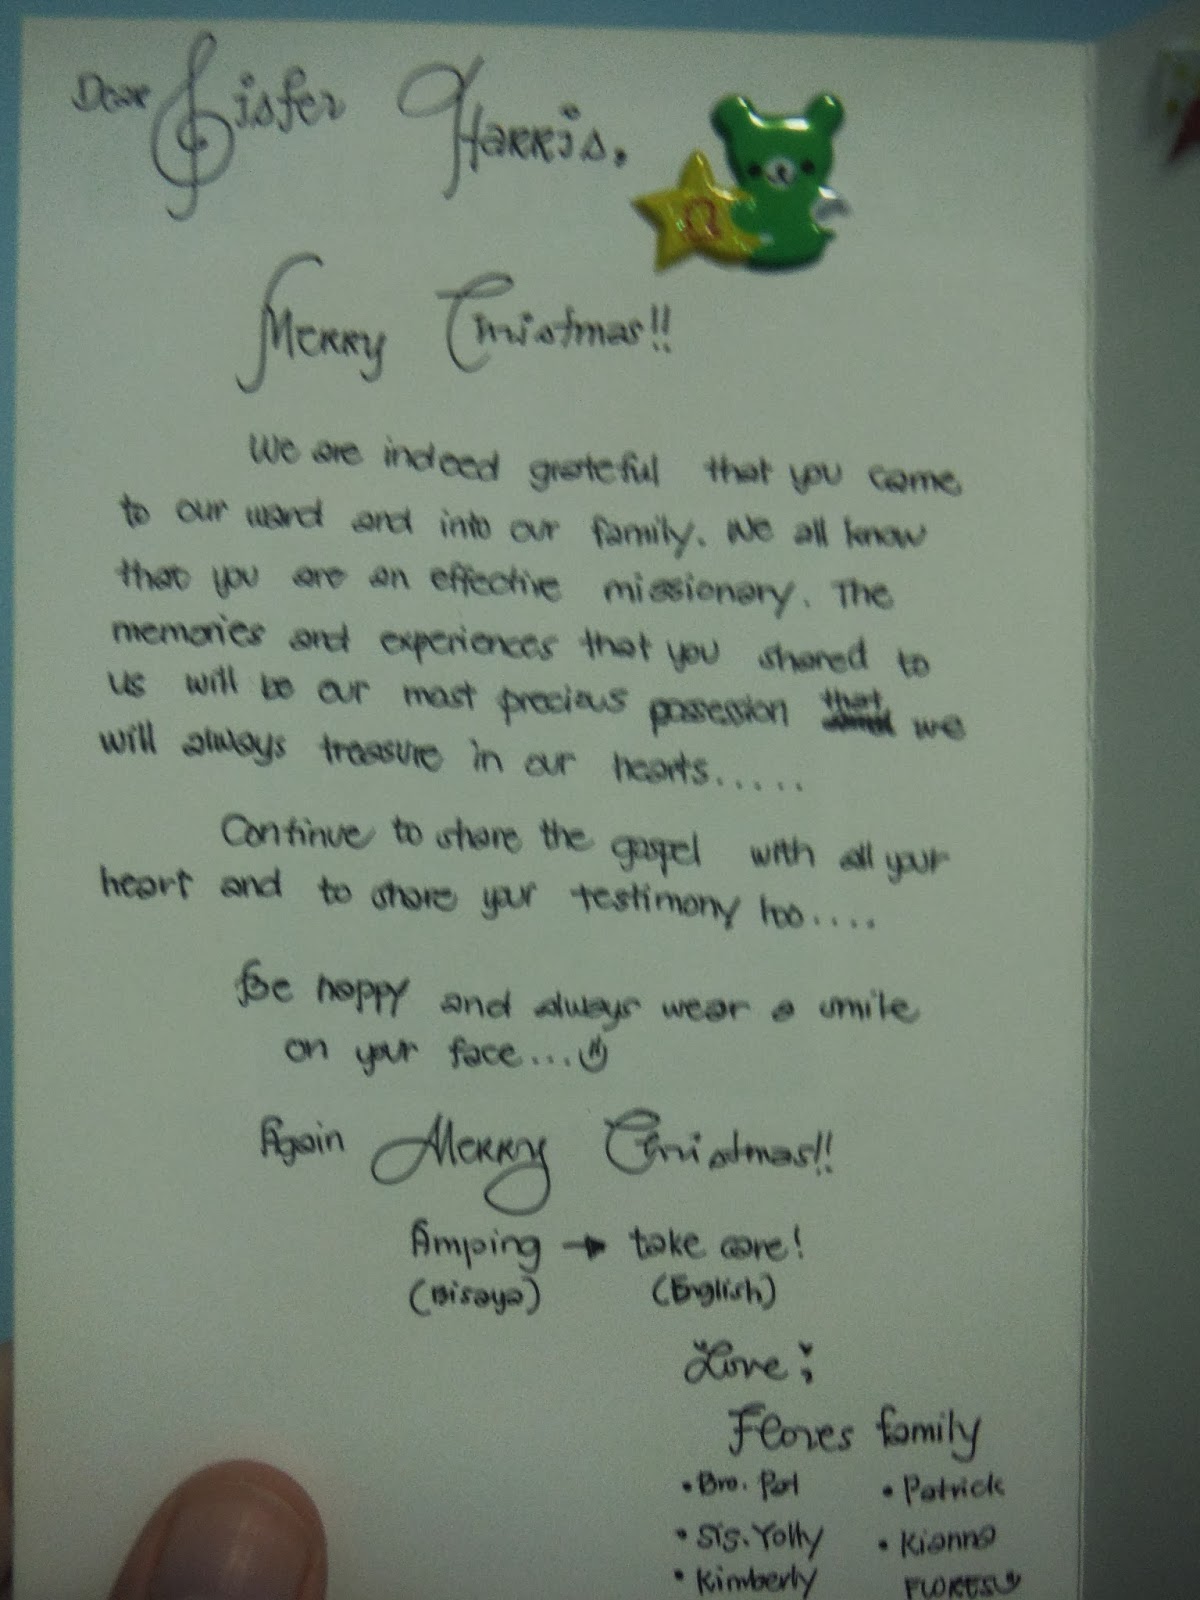 Dear Sister Harris,
Merry Christmas!!
We are indeed grateful that you came
to our ward and into our family. We all know
that you are an effective missionary. The
memories and experiences that you shared to
us will be our most precious possession that we
will always treasure in our hearts.....
Continue to share the gospel with all your
heart and to share your testimony too....
Be happy and always wear a smile
on your face...
Again Merry Christmas!!
Amping → take care!
(Bisaya) (English)
Love;
Flores family
• Bro. Pat • Patrick
• Sis. Yolly • Kianna
• Kimberly FLORES